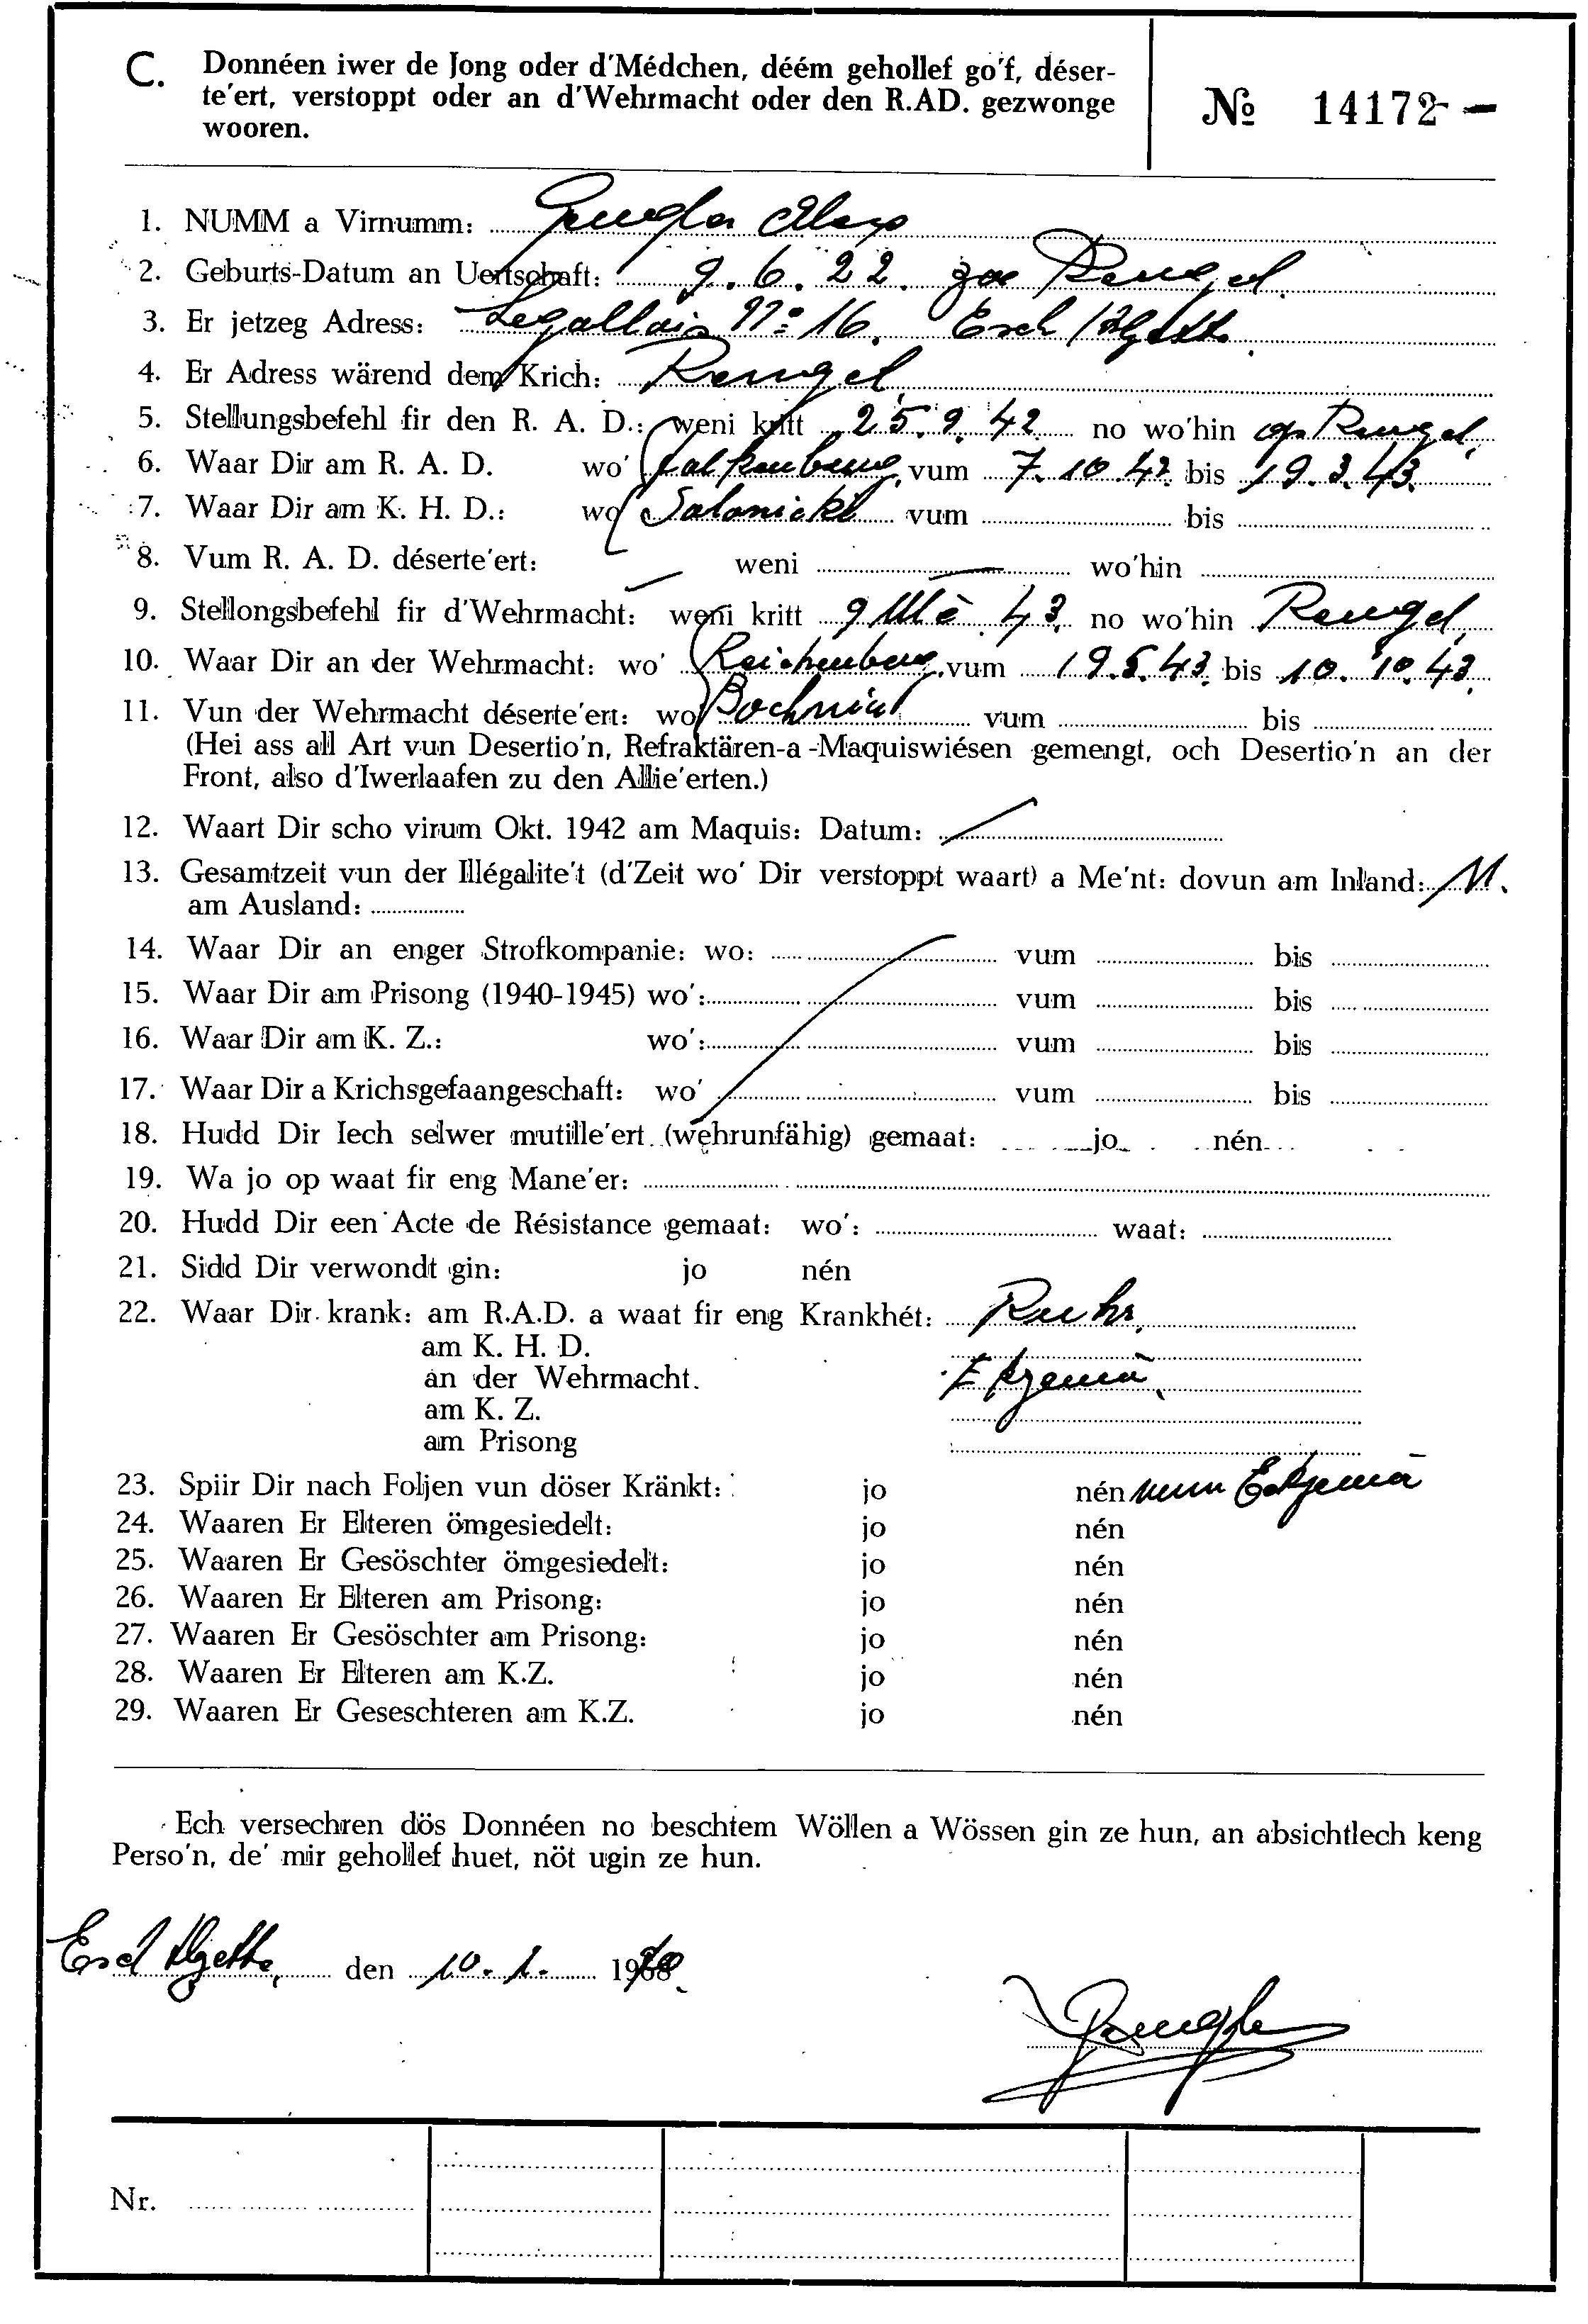 C. Donnéen iwer de Jong oder d'Médchen, déém gehollef go'f, déser-
te'ert, verstoppt oder an d'Wehrmacht oder den R.AD. gezwonge
wooren.
№ 14172 -
1. NUMM a Virnumm: Gengler
2. Geburts-Datum an Uertschaft: 9.6.22. zu Reugel.
3. Er jetzeg Adress: Legallais No 16. Esch / Alzette.
4. Er Adress wärend dem Krich: Reugel
5. Stellungsbefehl fir den R. A. D.: weni kritt 25.9.42 no wo'hin op Reugel,
6. Waar Dir am R. A. D. wo' Falkenberg, vum 7.10.42 bis 19.3.43.
7. Waar Dir am K. H. D.: wo Salonicki vum bis
8. Vum R. A. D. déserte'ert: weni wo'hin
9. Stellongsbefehl fir d'Wehrmacht: weni kritt 9 Mé 43. no wo'hin Reugel,
10. Waar Dir an der Wehrmacht: wo' Reichenberg, vum 19.5.43. bis 10.10.43.
11. Vun der Wehrmacht déserte'ert: wo Bochnia vum bis
(Hei ass all Art vun Desertio'n, Refraktären-a-Maquiswiésen gemengt, och Desertio'n an der
Front, also d'Iwerlaafen zu den Allie'erten.)
12. Waart Dir scho virum Okt. 1942 am Maquis: Datum: /
13. Gesamtzeit vun der Illégalite't (d'Zeit wo' Dir verstoppt waart) a Me'nt: dovun am Inland: 11.
am Ausland:
14. Waar Dir an enger Strofkompanie: wo: vum bis
15. Waar Dir am Prisong (1940-1945) wo': vum bis
16. Waar Dir am K. Z.: wo': vum bis
17. Waar Dir a Krichsgefaangeschaft: wo' vum bis
18. Hudd Dir Iech selwer mutille'ert (wehrunfähig) gemaat: jo nén
19. Wa jo op waat fir eng Mane'er:
20. Hudd Dir een Acte de Résistance gemaat: wo': waat:
21. Sidd Dir verwondt gin: jo nén
22. Waar Dir krank: am R.A.D. a waat fir eng Krankhét: Ruhr.
am K. H. D.
an der Wehrmacht. Ekzema.
am K. Z.
am Prisong
23. Spiir Dir nach Foljen vun döser Kränkt: jo nén vum Eckzema
24. Waaren Er Elteren ömgesiedelt: jo nén
25. Waaren Er Gesöschter ömgesiedelt: jo nén
26. Waaren Er Elteren am Prisong: jo nén
27. Waaren Er Gesöschter am Prisong: jo nén
28. Waaren Er Elteren am K.Z. jo nén
29. Waaren Er Geseschteren am K.Z. jo nén
Ech versechren dös Donnéen no beschtem Wöllen a Wössen gin ze hun, an absichtlech keng
Perso'n, de' mir gehollef huet, nöt ugin ze hun.
Esch Alzette, den 10.1. 19
Gengler
Nr.